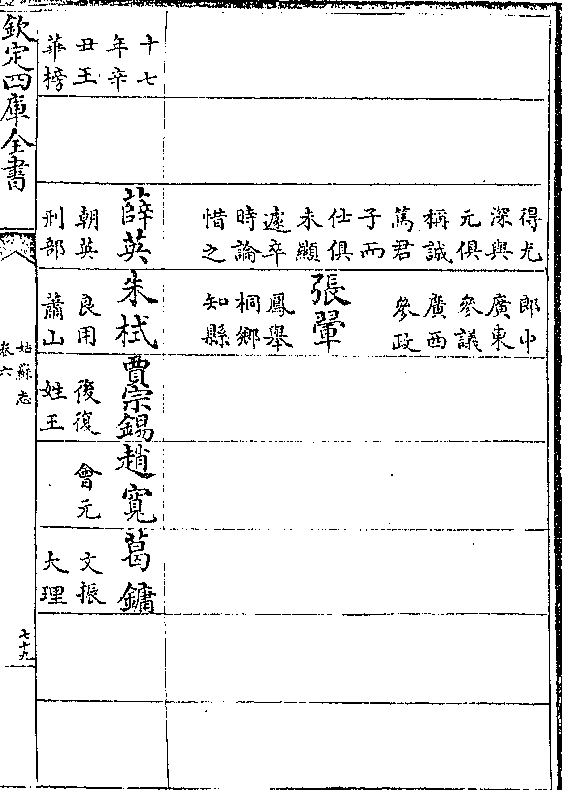 得尤
深與
元俱
稱誠
篤君
子而
仕俱
未顯
遽卒
時論
惜之
郎中
廣東
參議
廣西
參政
張翬
鳳舉
桐鄉
知縣
十七
年辛
丑王
華榜
薛英
朝英
刑部
朱栻
良用
蕭山
賈宗錫
後復
姓王
趙寛
會元
葛鏞
文振
大理
欽定四庫全書
姑蘇志
卷六
七十九